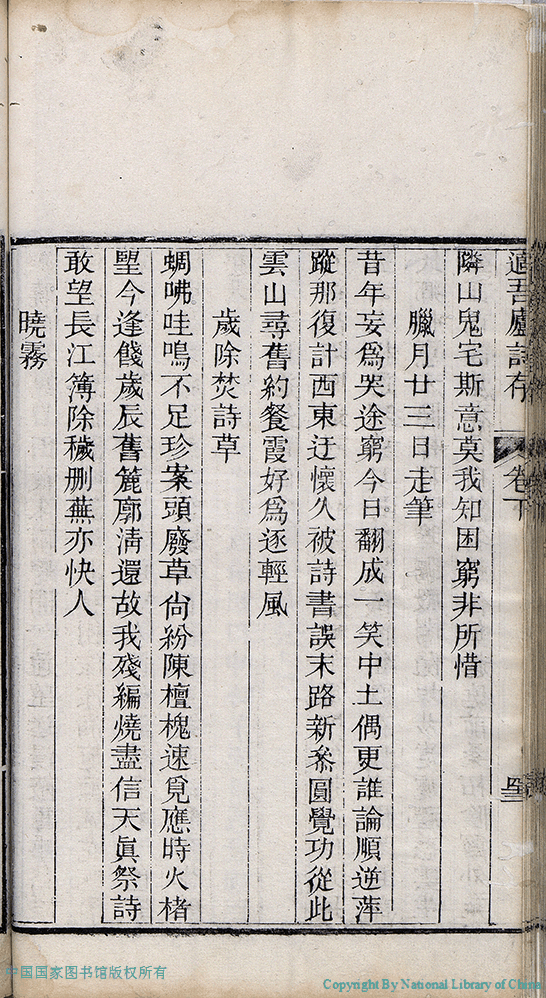 適吾廬詩存 卷下
隣山鬼宅斯意莫我知困窮非所惜
臘月廿三日走筆
昔年妄爲哭途窮今日翻成一笑中土偶更誰論順逆萍
蹤那復計西東迂懷久被詩書誤末路新叅圓覺功從此
雲山尋舊約餐霞好爲逐輕風
歲除焚詩草
蜩咈哇鳴不足珍案頭廢草尙紛陳檀槐速覓應時火楮
墾今逢餞歲辰舊簏廓淸還故我殘編燒盡信天眞祭詩
敢望長江簿除穢刪蕪亦快人
曉霧
中国国家图书馆版权所有
Copyright By National Library of China